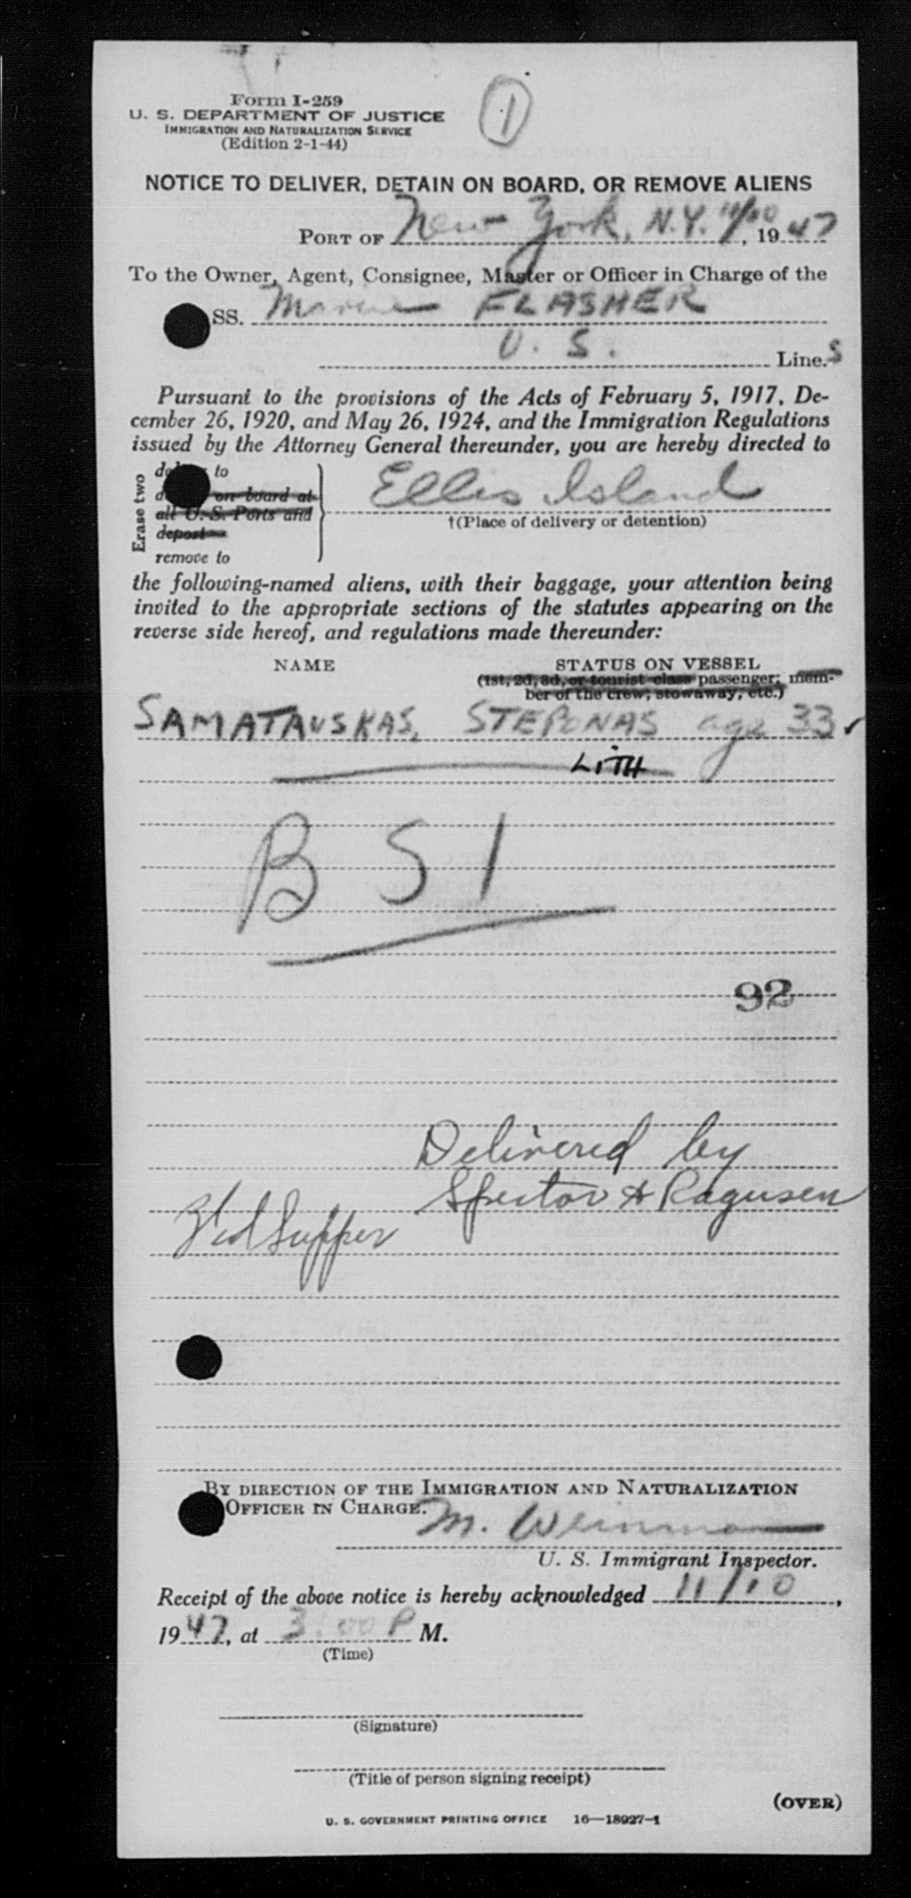 Form I-259
1
U. S. DEPARTMENT OF JUSTICE
IMMIGRATION AND NATURALIZATION SERVICE
(Edition 2-1-44)
NOTICE TO DELIVER, DETAIN ON BOARD, OR REMOVE ALIENS
PORT OF New York, N.Y. 11/10, 1947
To the Owner, Agent, Consignee, Master or Officer in Charge of the
SS. Marine FLASHER
U. S. Lines
Pursuant to the provisions of the Acts of February 5, 1917, De-
cember 26, 1920, and May 26, 1924, and the Immigration Regulations
issued by the Attorney General thereunder, you are hereby directed to
Erase two
to
on board at
all U. S. Ports and
deport
remove to
Ellis Island
†(Place of delivery or detention)
the following-named aliens, with their baggage, your attention being
invited to the appropriate sections of the statutes appearing on the
reverse side hereof, and regulations made thereunder:
NAME STATUS ON VESSEL
(1st, 2d, 3d, or tourist class passenger; mem-
ber of the crew; stowaway, etc.)
SAMATAUSKAS, STEPONAS age 33 ✓
LITH
B S I
92
Delivered by
Spector & Ragusen
Supper
BY DIRECTION OF THE IMMIGRATION AND NATURALIZATION
OFFICER IN CHARGE.
M. Weinman
U. S. Immigrant Inspector.
Receipt of the above notice is hereby acknowledged 11/10,
1947, at 3:00 P M.
(Time)
(Signature)
(Title of person signing receipt)
(OVER)
U. S. GOVERNMENT PRINTING OFFICE 16—18927-1